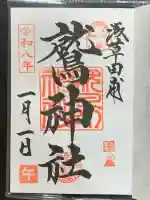 浅草田甫
鷲神社
令和八年
一月一日
午